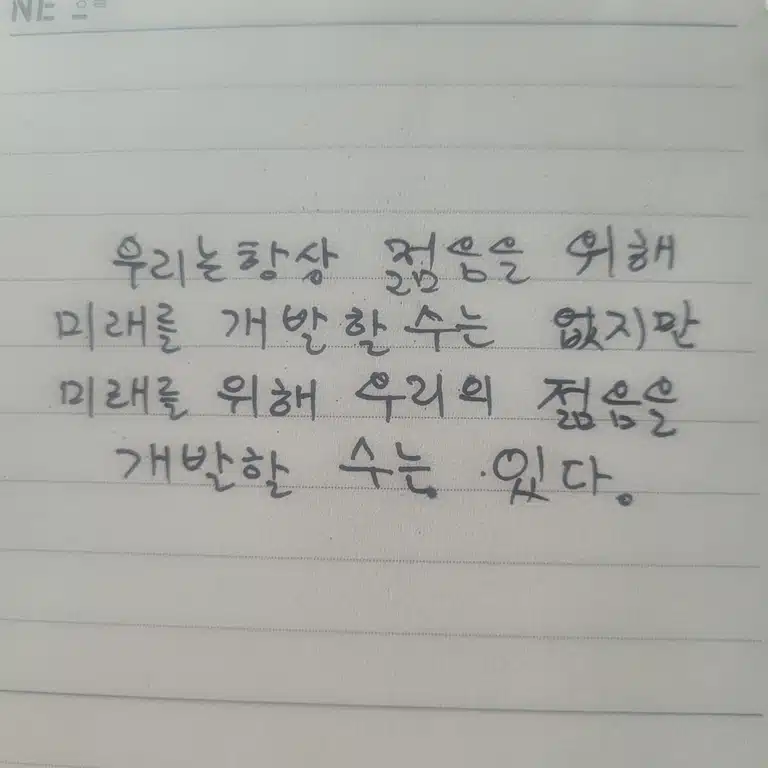 우리는 항상 젊음을 위해
미래를 개발할 수는 없지만
미래를 위해 우리의 젊음을
개발할 수는 있다.